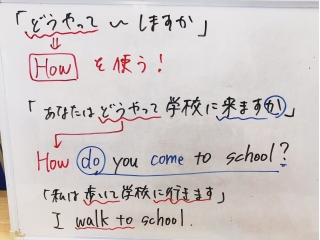 「どうやって〜しますか」
⇓
How を使う!
「あなたはどうやって学校に来ますか」
How do you come to school?
「私は歩いて学校に行きます」
I walk to school.